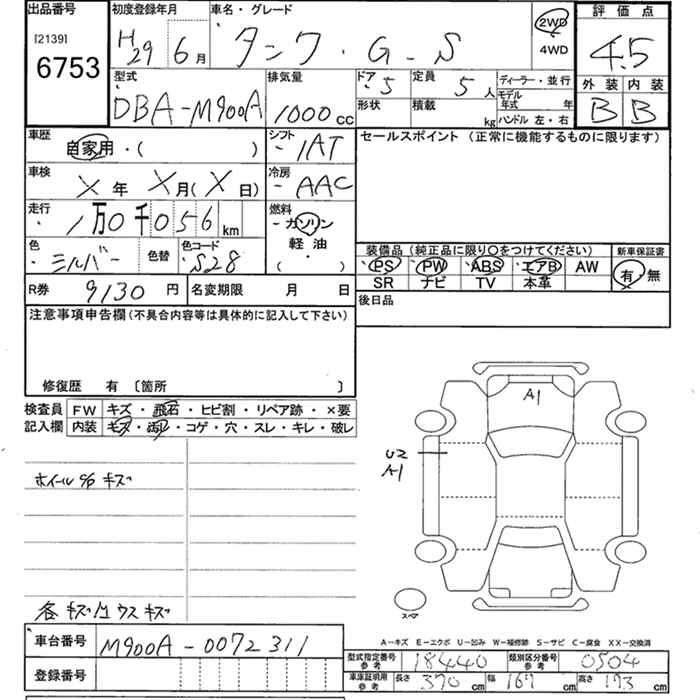 出品番号 初度登録年月 車名・グレード 評価点
[2139] 6753 H29 6月 タンク・G-S 2WD 4WD 4.5
型式 排気量 ドア 5 定員 5人 ディーラー・並行 外装 内装
DBA-M900A 1000cc 形状 積載 kg モデル年式 年 B B
ハンドル 左・右
車歴 自家用・( ) シフト IAT セールスポイント (正常に機能するものに限ります)
車検 X年 X月(X日) 冷房 AAC
走行 1万0千056km 燃料 ガソリン
軽油
( )
色 シルバー 色替 色コード S28 装備品 (純正品に限り○をつけてください) 新車保証書
PS PW ABS エアB AW 有・無
SR ナビ TV 本革
R券 9130円 名変期限 月 日 後日品
注意事項申告欄 (不具合内容等は具体的に記入して下さい)
修復歴 有 〔箇所 〕
検査員 FW キズ・飛石・ヒビ割・リペア跡・×要
記入欄 内装 キズ・汚レ・コゲ・穴・スレ・キレ・破レ
A1
U2
A1
ホイール% キズ
各キズ/1 ウスキズ
スペア
A-キズ E-エクボ U-凹み W-補修跡 S-サビ C-腐食 XX-交換済
車台番号 M900A-0072311
登録番号
型式指定番号 参考 18440 類別区分番号 参考 0504
車庫証明用 参考 長さ 370cm 幅 167cm 高さ 173cm